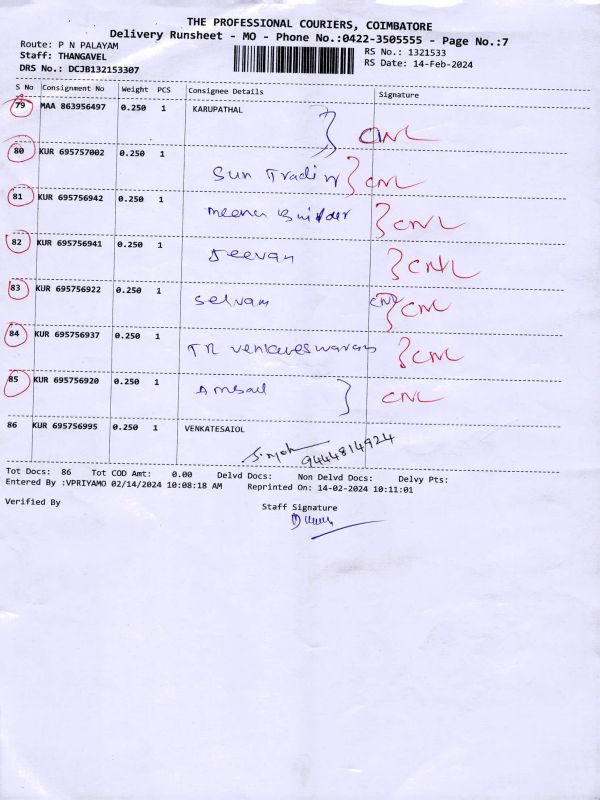 THE PROFESSIONAL COURIERS, COIMBATORE
Delivery Runsheet - MO - Phone No.:0422-3505555 - Page No.:7
Route: P N PALAYAM
Staff: THANGAVEL
DRS No.: DCJB132153307
RS No.: 1321533
RS Date: 14-Feb-2024
S No Consignment No Weight PCS Consignee Details Signature
79 MAA 863956497 0.250 1 KARUPATHAL
CNL
80 KUR 695757002 0.250 1
Sun Trading CNL
81 KUR 695756942 0.250 1
Meena Builder CNL
82 KUR 695756941 0.250 1
Jeevan CNL
83 KUR 695756922 0.250 1
Selvam CNL CNL
84 KUR 695756937 0.250 1
TR Venkateswaran CNL
85 KUR 695756920 0.250 1
CNL
86 KUR 695756995 0.250 1 VENKATESAIOL
9444814924
Tot Docs: 86 Tot COD Amt: 0.00 Delvd Docs: Non Delvd Docs: Delvy Pts:
Entered By :VPRIYAMO 02/14/2024 10:08:18 AM Reprinted On: 14-02-2024 10:11:01
Verified By
Staff Signature